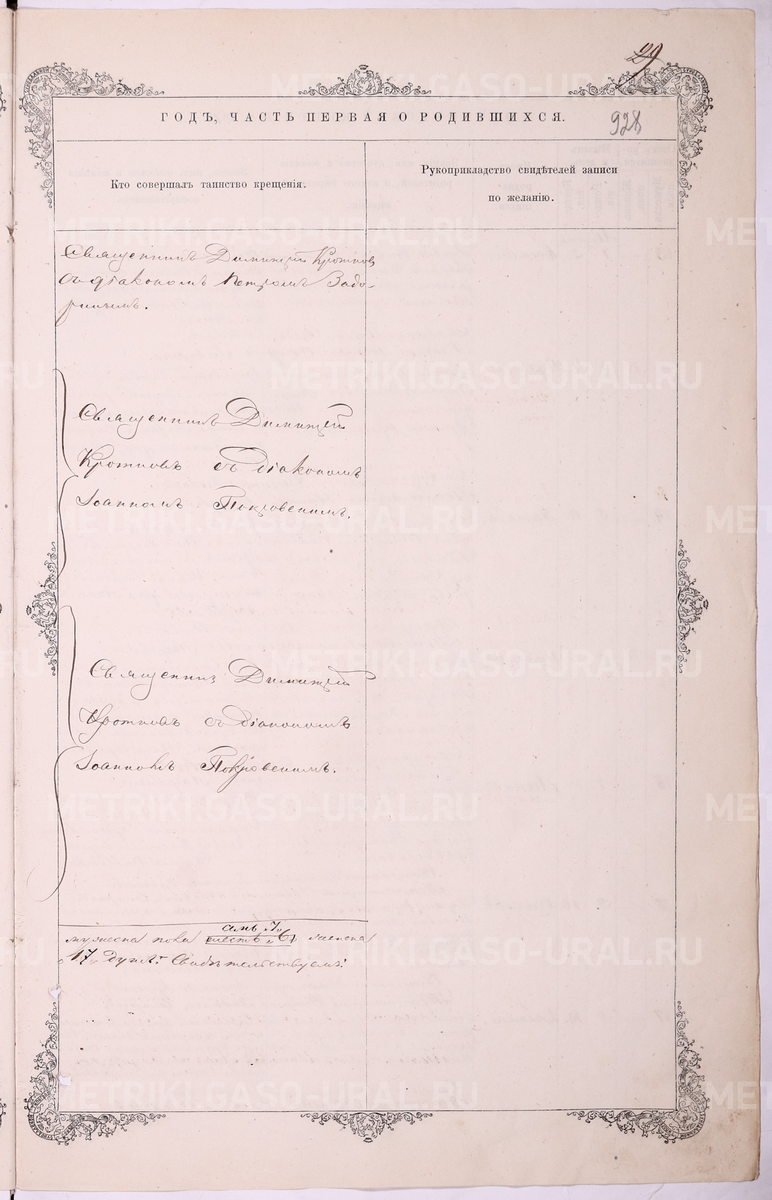 29
928
ГОДЪ, ЧАСТЬ ПЕРВАЯ О РОДИВШИХСЯ.
Кто совершалъ таинство крещенія.
Рукоприкладство свидѣтелей записи
по желанію.
Священникъ Димитрій Кротковъ
съ діакономъ Петромъ Задо-
ринымъ.
Священникъ Димитрій
Кротковъ съ діакономъ
Іоанномъ Покровскимъ.
Священникъ Димитрій
Кротковъ съ діакономъ
Іоанномъ Покровскимъ.
мужеска пола
17 Свидѣтельствуемъ:
METRIKI.GASO-URAL.RU